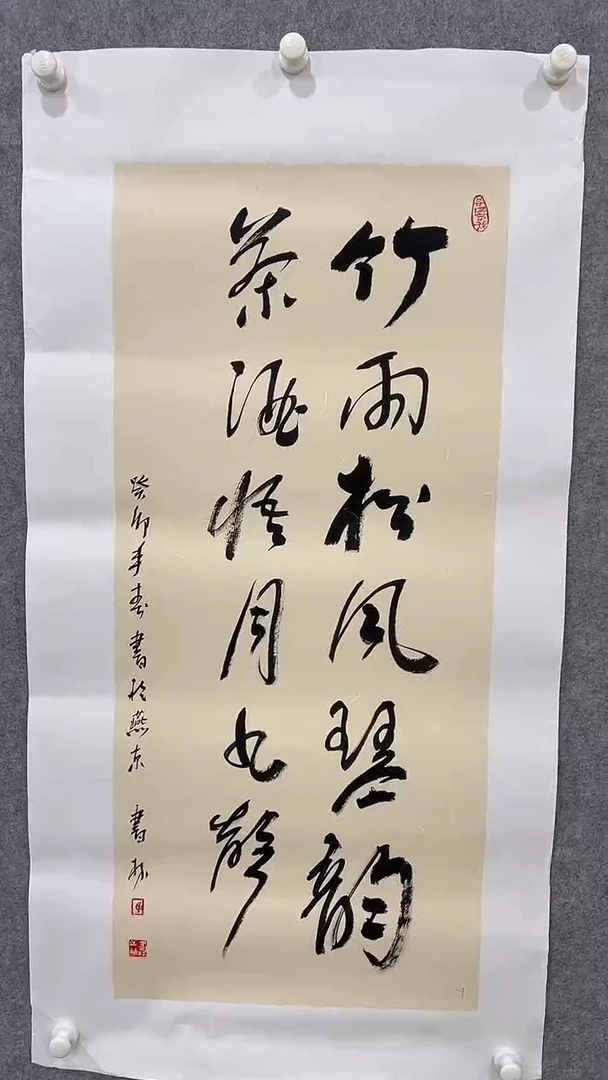 竹雨松风琴韵
茶悟月书聲
癸卯年春書於燕东 書林